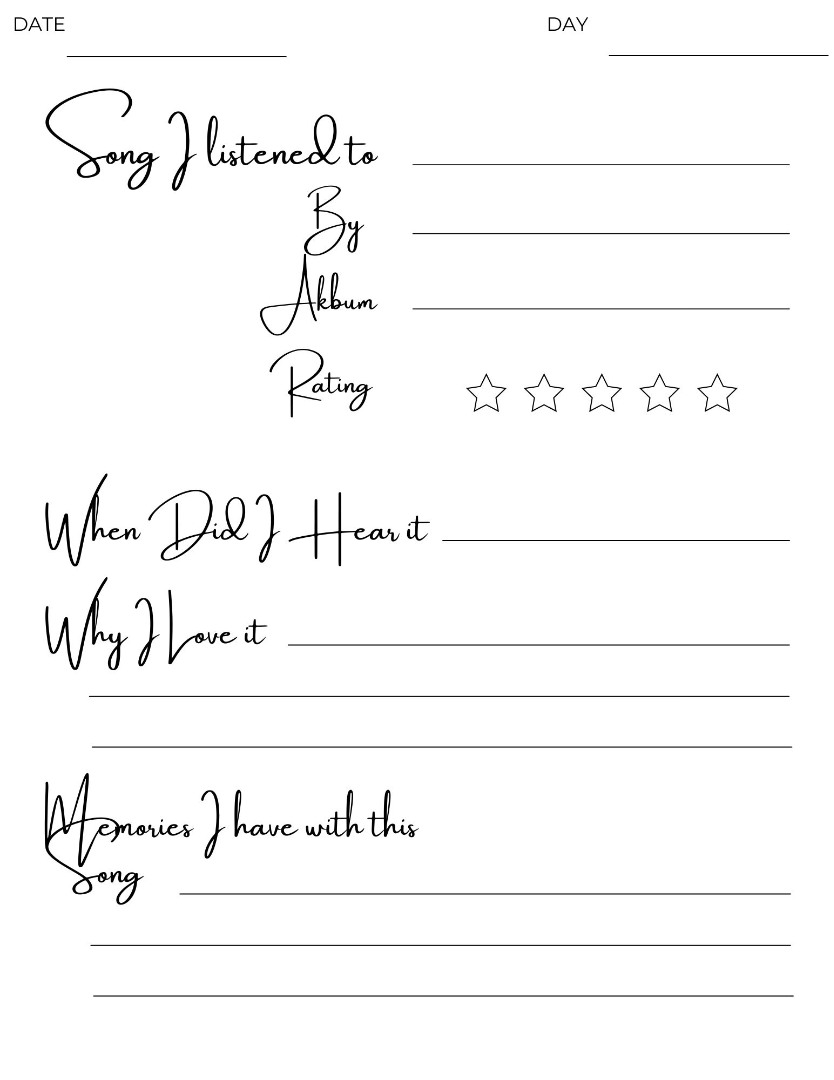 DATE DAY
Song I listened to
By
Akbum
Rating
When Did I Hear it
Why I Love it
Memories I have with this
Song